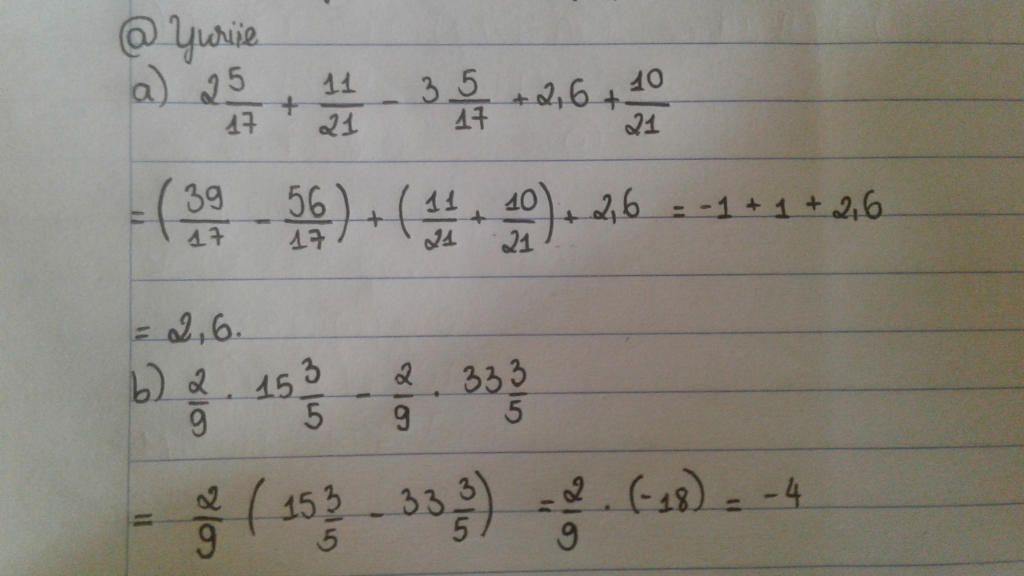 @ Yuriie
a) 2 5/17 + 11/21 - 3 5/17 + 2,6 + 10/21
= (39/17 - 56/17) + (11/21 + 10/21) + 2,6 = -1 + 1 + 2,6
= 2,6.
b) 2/9 . 15 3/5 - 2/9 . 33 3/5
= 2/9 (15 3/5 - 33 3/5) = 2/9 . (-18) = -4